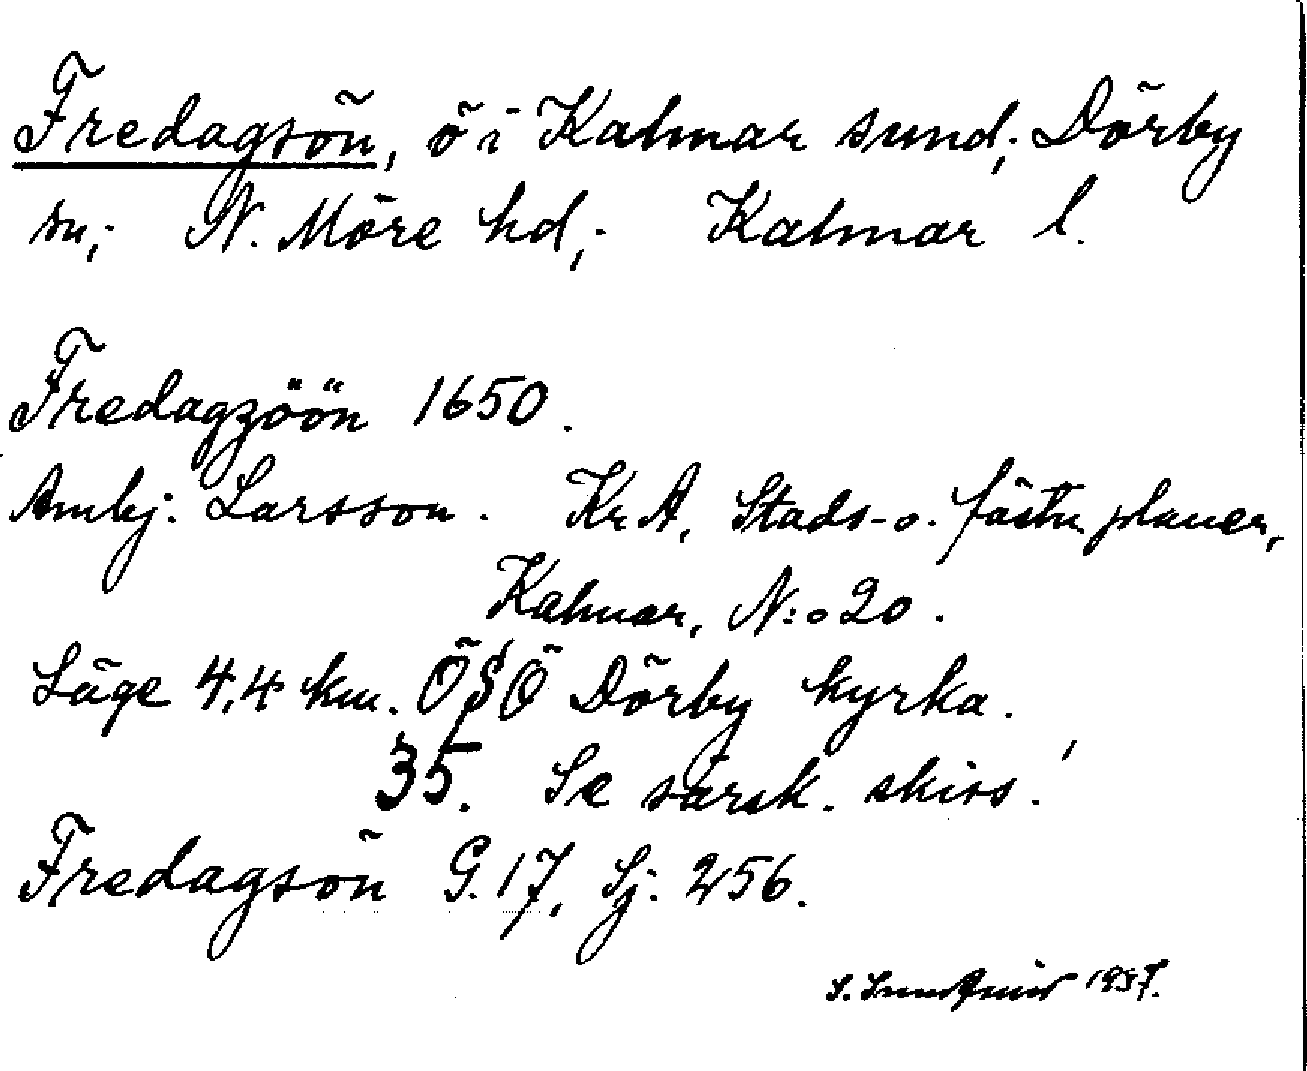 Fredagsön, ö i Kalmar sund; Dörby
sn; N. Möre hd; Kalmar l.
Fredagzöön 1650.
Ambj. Larsson. Kr A, Stads- o. fästn. planer,
Kalmar, N:o 20.
Läge 4,4 km. ÖSÖ Dörby kyrka.
35. Se särsk. skiss!
Fredagsön G. 17, Sj. 256.
S. 1937.